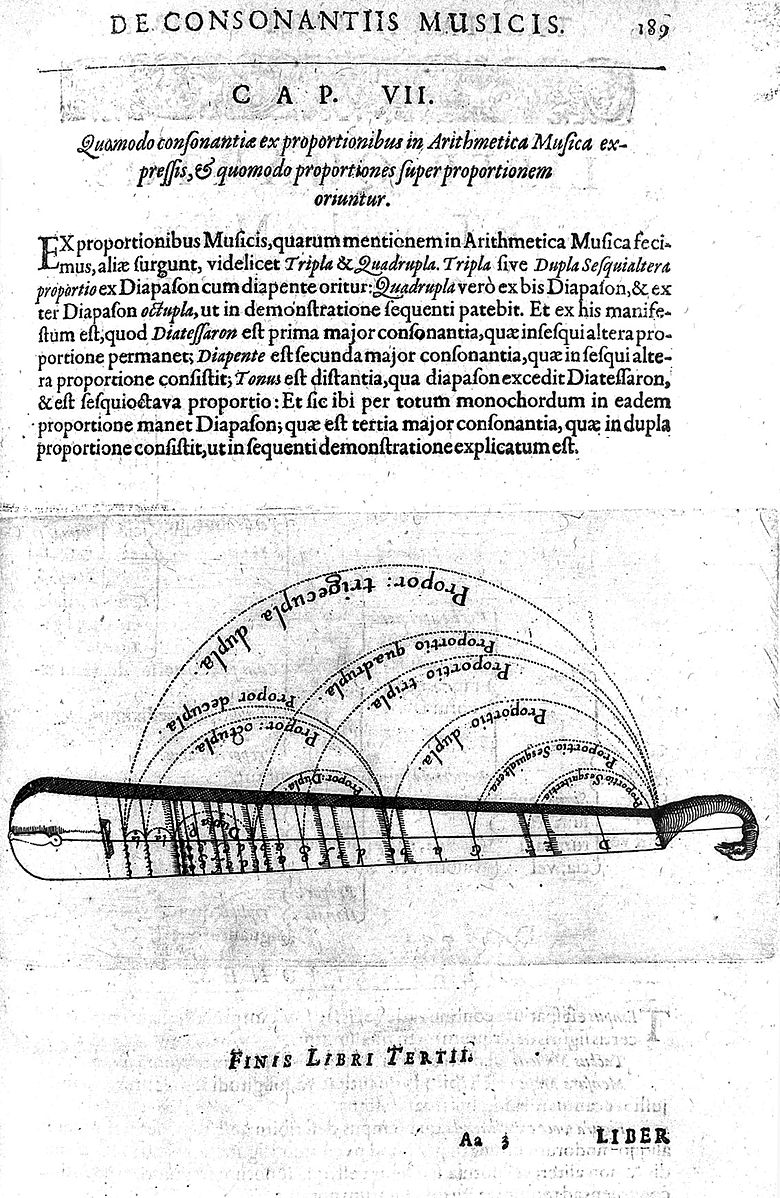 DE CONSONANTIIS MUSICIS. 189
CAP. VII.
Quomodo consonantiæ ex proportionibus in Arithmetica Musica ex-
pressis, & quomodo proportiones super proportionem
oriuntur.
EX proportionibus Musicis, quarum mentionem in Arithmetica Musica feci-
mus, aliæ surgunt, videlicet Tripla & Quadrupla. Tripla sive Dupla Sesquialtera
proportio ex Diapason cum diapente oritur: Quadrupla verò ex bis Diapason, & ex
ter Diapason octupla, ut in demonstratione sequenti patebit. Et ex his manife-
stum est, quod Diatessaron est prima major consonantia, quæ in sesquialtera pro-
portione permanet; Diapente est secunda major consonantia, quæ in sesqui alte-
ra proportione consistit; Tonus est distantia, qua diapason excedit Diatessaron,
& est sesquioctava proportio: Et sic ibi per totum monochordum in eadem
proportione manet Diapason; quæ est tertia major consonantia, quæ in dupla
proportione consistit, ut in sequenti demonstratione explicatum est.
Propor: trigecupla dupla
Proportio quadrupla
Proportio tripla
Propor decupla
Propor: octupla
Proportio dupla
Proportio Sesquialtera
Propor: Dupla
Proportio Sesquitertia
Dupla p
d
c
a
G
D
FINIS LIBRI TERTII.
Aa 3 LIBER